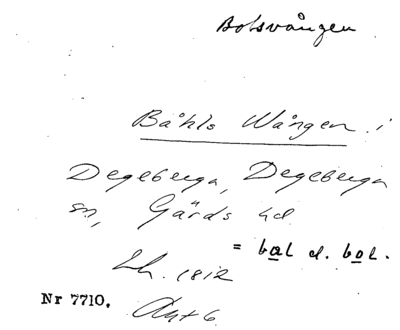 Bolsvången
Båhls Wången i
Degeberga, Degeberga
sn, Gärds hd
= bal d. bol.
Lh. 1812
Nr 7710. Akt 6